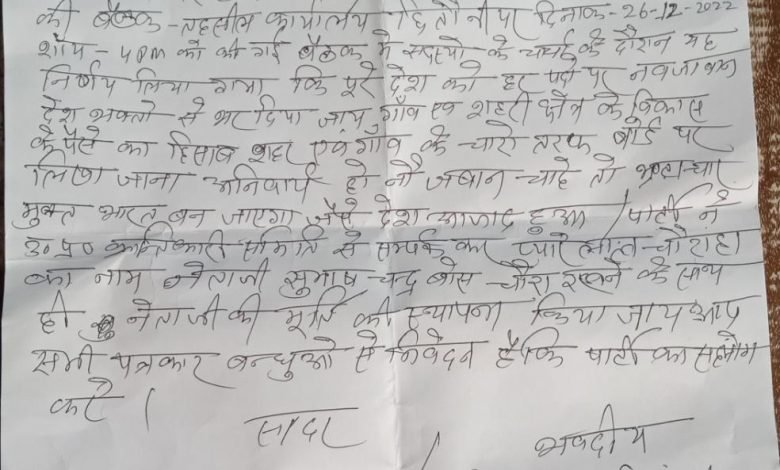 की बैठक - तहसील कार्यालय पर दिनांक - 26-12-2022
शाम - 4 PM को की गई बैठक में सदस्यो के चर्चा के दौरान यह
निर्णय लिया गया कि पूरे देश को हर पदो पर नवजावान
देश भक्तो से भर दिया जाय गाँव एवं शहरी क्षेत्र के विकास
के पैसे का हिसाब शहर एवं गाँव के चारो तरफ बोर्ड पर
लिखा जाना अनिवार्य हो नौ जबान चाहे तो भ्रष्टाचार
मुक्त भारत बन जाएगा जैसे देश आजाद हुआ / पार्टी ने
उ० प्र० क्रान्तिकारी समिति से सम्पर्क कर प्यारे लाल चौराहा
का नाम नेताजी सुभाष चन्द्र बोस चौरा रखने के साथ
ही नेताजी की मूर्ति की स्थापना किया जाय आप
सभी पत्रकार बन्धुओ से निवेदन है कि पार्टी का सहयोग
करे ।
सादर
भवदीय